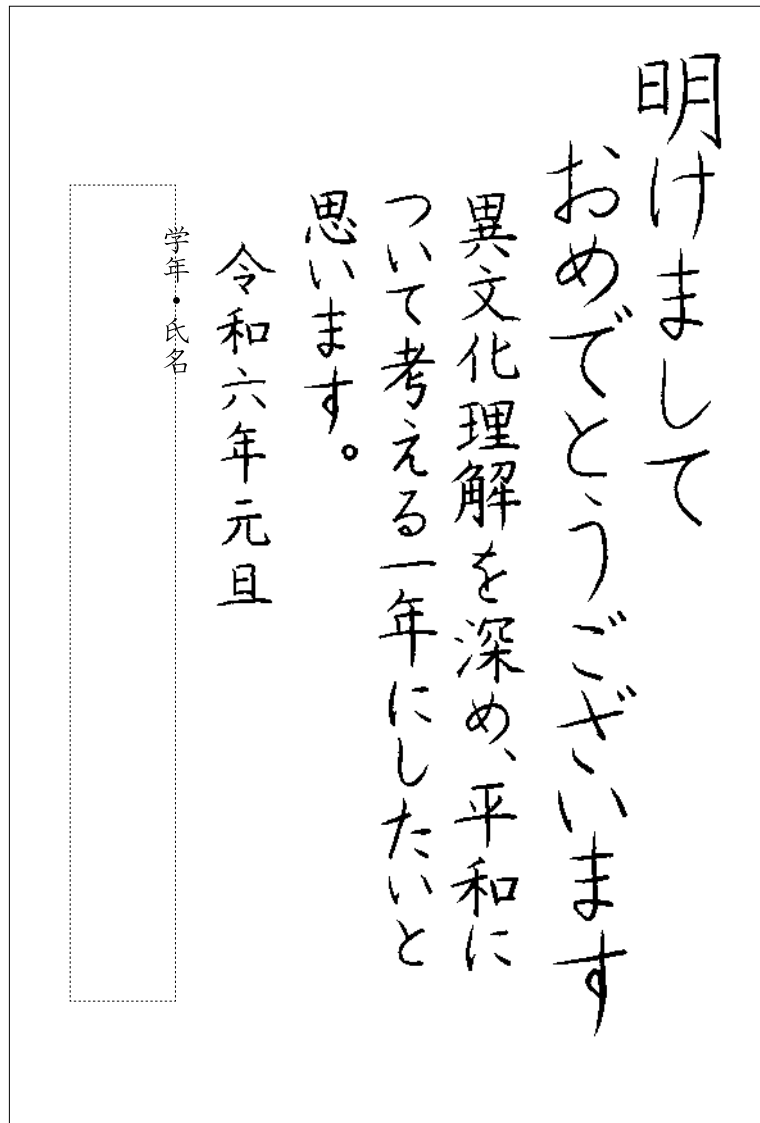 明けまして
おめでとうございます
異文化理解を深め、平和に
ついて考える一年にしたいと
思います。
令和六年元旦
学年・氏名